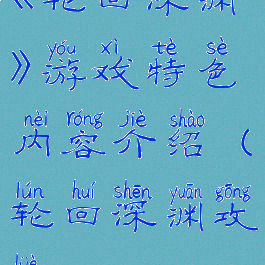 《轮回深渊
yóu xì tè sè
》游戏特色
nèi róng jiè shào
内容介绍（
lún huí shēn yuān gōng
轮回深渊攻
lüè